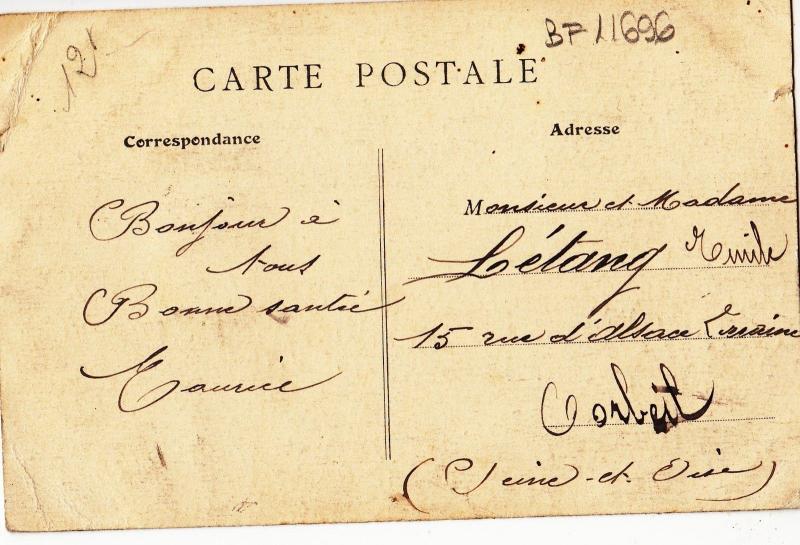 121
BF 11696
CARTE POSTALE
Correspondance
Bonjour à
tous
Bonne santé
Maurice
Adresse
Monsieur et Madame
Létang Emile
15 rue d'alsace Lorraine
Corbeil
(Seine-et-Oise)